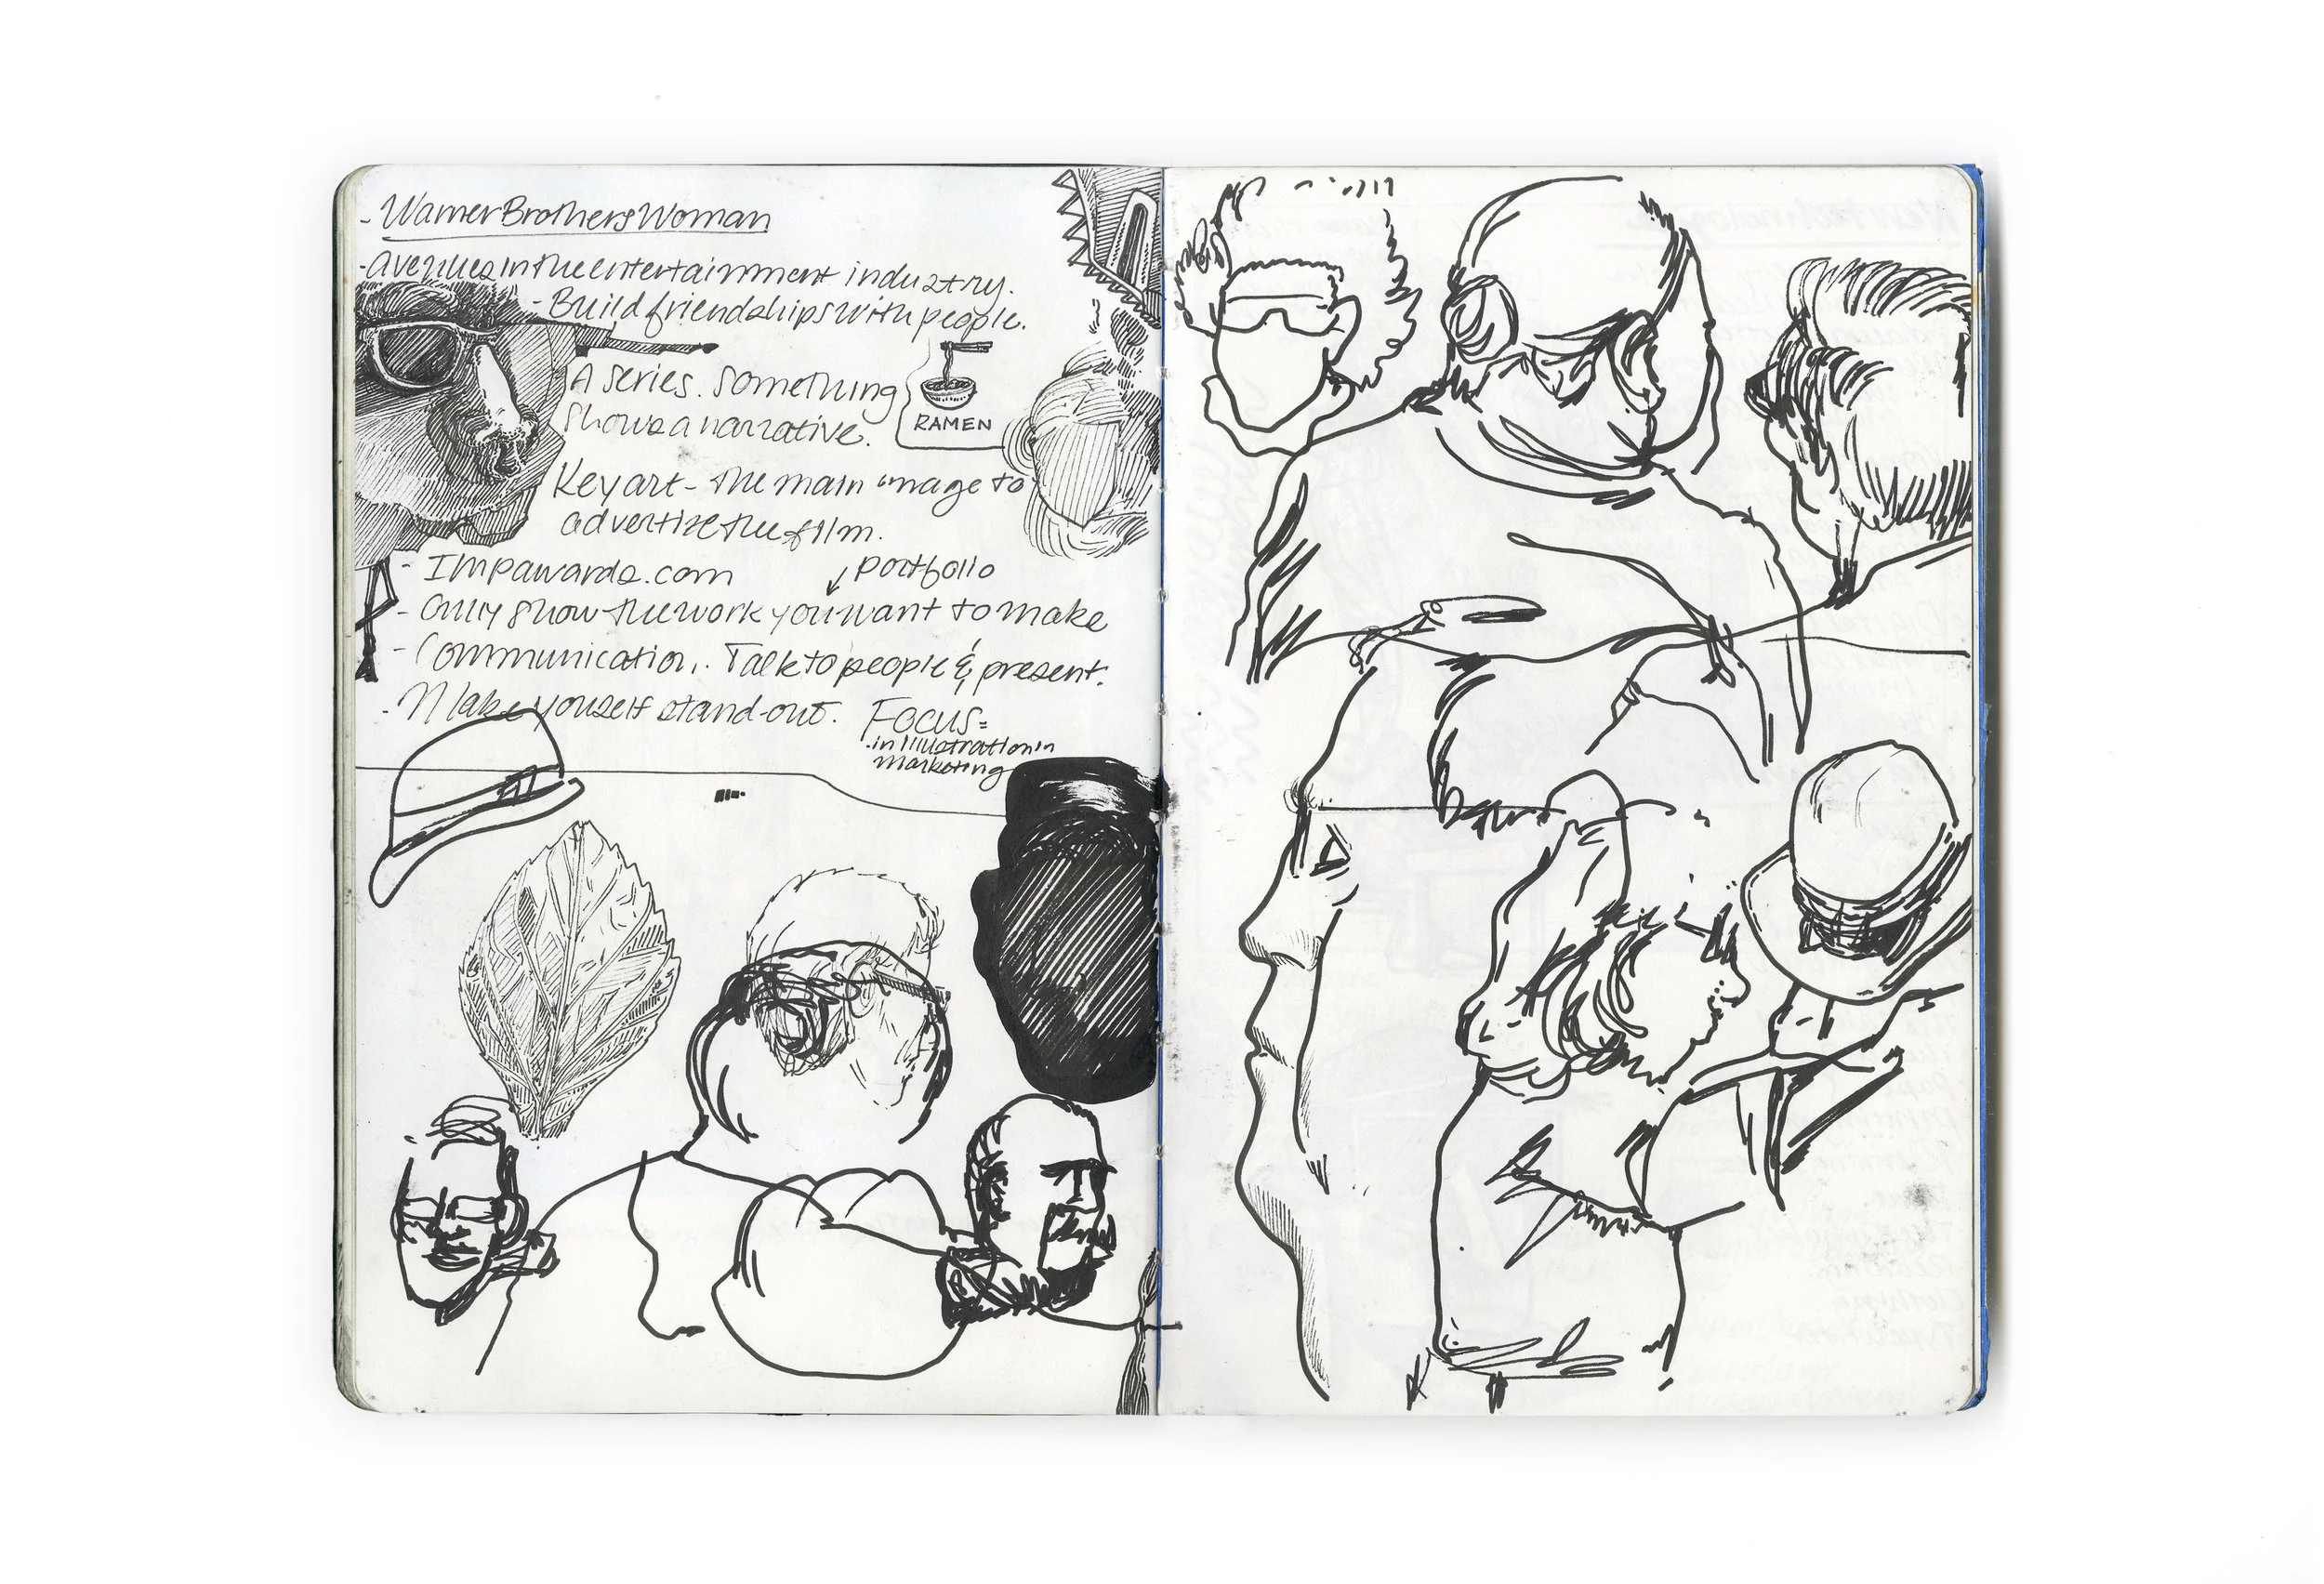 - Warner Brothers Woman
- Avenues in the entertainment industry.
- Build friendships with people.
A series. Something
shows a narrative.
RAMEN
Key art - the main image to
advertize the film.
- Impawards.com
↓ portfolio
- Only show the work you want to make
- Communication. Talk to people & present.
- Make youself stand-out.
Focus:
- in illustration in
marketing